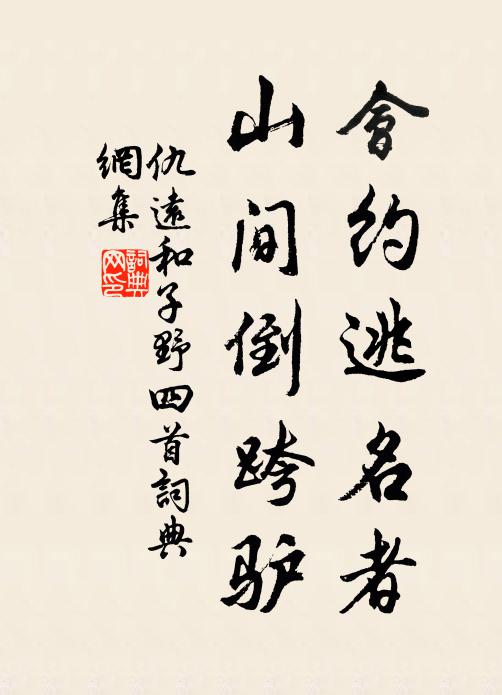 會約逃名者
山間倒跨驴
仇遠和子野四首詞典
網集
詞典
网印